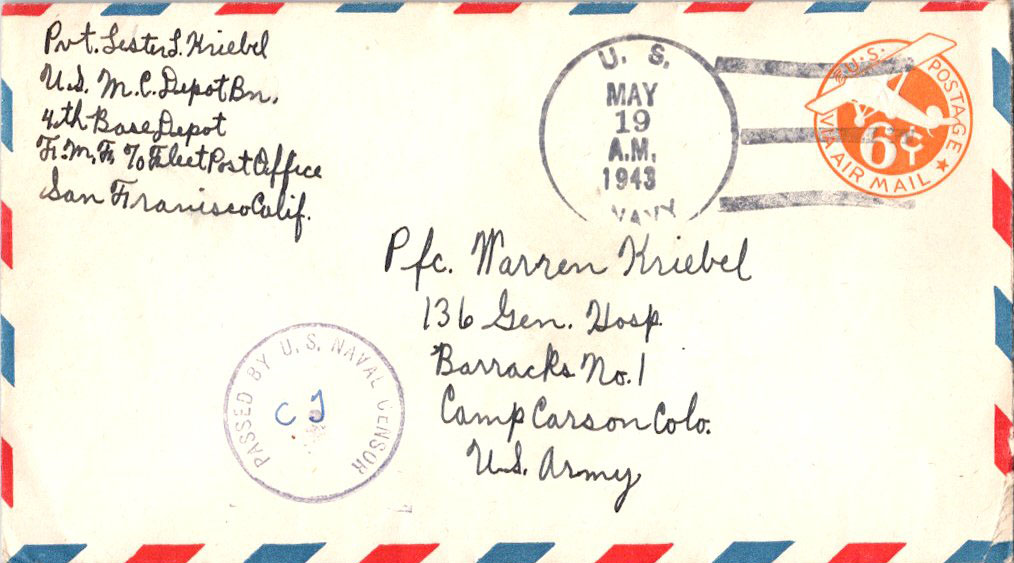 Pvt. Lester L. Kriebel
U.S. M.C. Depot Bn.
4th Base Depot
F.M.F. % Fleet Post Office
San Franisco Calif.
U. S.
MAY
19
A.M.
1943
NAVY
U.S. POSTAGE
6¢
VIA AIR MAIL
Pfc. Warren Kriebel
136 Gen. Hosp.
Barracks No. 1
Camp Carson Colo.
U.S. Army
PASSED BY U.S. NAVAL CENSOR
CJ